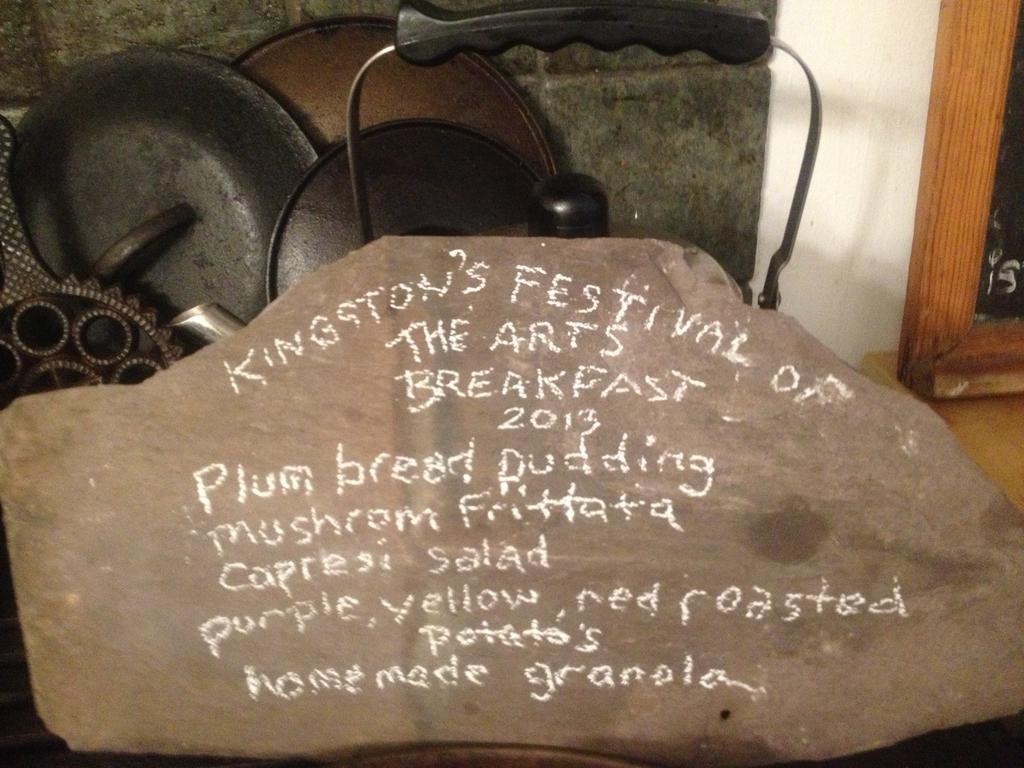 KINGSTON'S FESTIVAL OF
THE ARTS
BREAKFAST
2013
Plum bread pudding
mushrom Frittata
Capresi salad
purple, yellow, red roasted
potato's
homemade granola